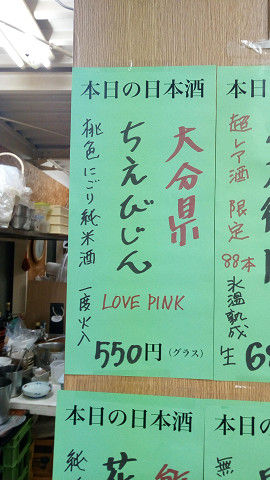 本日の日本酒
大分県
ちえびじん
桃色にごり純米酒 一度火入
LOVE PINK
550円(グラス)
本日の
超レア酒 限定 88本
氷温熟成
生
本日の日本酒
純
花
本日の
無